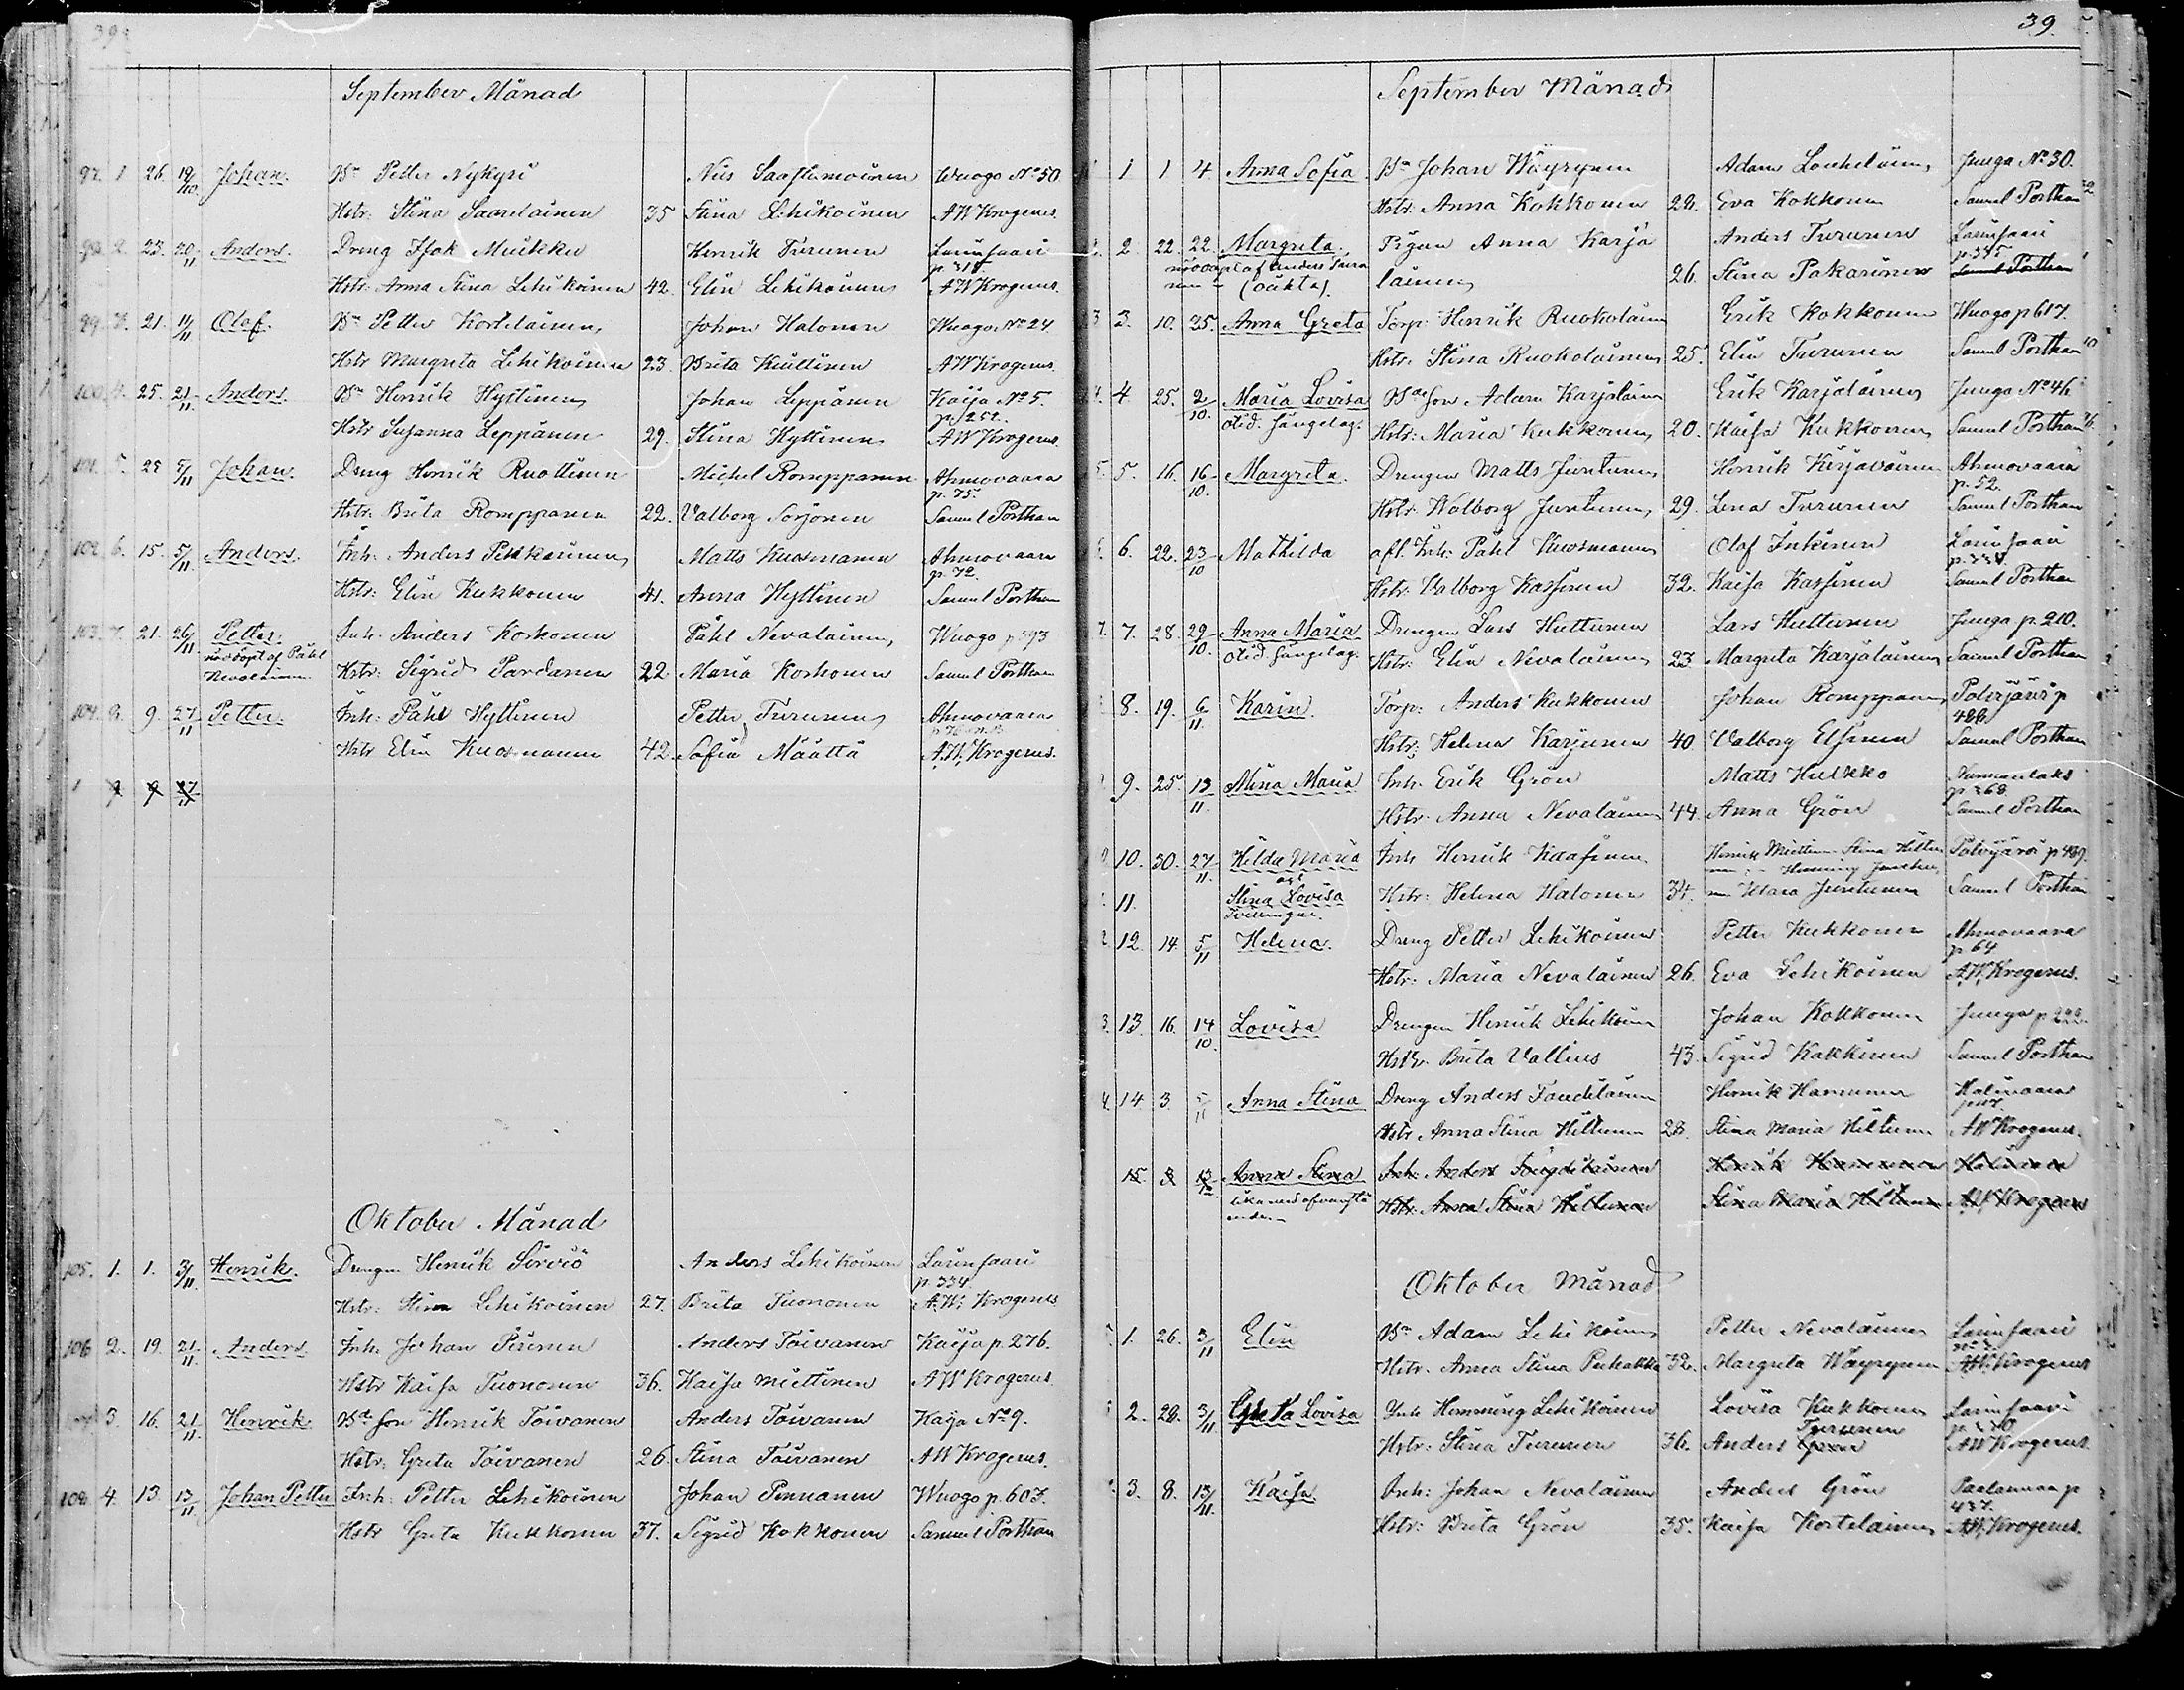 39
September Månad
97. 1 26. 19/10. Johan. Bn Petter Nykyri Nils Saastamoinen Wuogo No 50
Hstr: Stina Saarelainen 35 Stina Lehikoinen AW Krogerus.
98. 2. 23. 20/11 Anders. Dreng Isak Mutkka Henrik Turunen Larinsaari p. 318.
Hstr: Anna Stina Lehikoinen 42. Elin Lehikoinen AW Krogerus.
99. 3. 21. 14/11 Olof. Bn Petter Kortelainen, Johan Halonen Wuogo No 24
Hstr Margreta Lehikoinen 23. Brita AW Krogerus.
100. 4. 25. 21/11. Anders. Bn Henrik Hyttinen Johan Leppänen Kaija No 5. p. 252.
Hstr Susanna Leppänen 29. Stina Hyttinen AW Krogerus.
101. 5. 25 5/11 Johan. Dreng Henrik Ruottinen Michel Romppanen Ahmovaara p. 75.
Hstr: Brita Romppanen 22. Valborg Sorjonen Samuel Porthan
102. 6. 15. 5/11 Anders. Inh: Anders Pekkainen Matts Kuosmanen Ahmovaara p. 72.
Hstr: Elin Kukkonen 41. Anna Hyttinen Samuel Porthan
103. 7. 21. 26/11. Petter. Inh. Anders Korhonen Påhl Nevalainen, Wuogo p 593
nöddöpt af Påhl Nevalainen Hstr: Sigrid Pardanen 22 Maria Korhonen Samuel Porthan
104. 8. 9. 27/11 Petter. Inh: Påhl Hyttinen Petter Turunen Ahmovaara
Hstr Elin Kuosmanen 42. Sofia Määttä A.W. Krogerus.
9 9 27/11
Oktober Månad
105. 1. 1. 3/11. Henrik. Drengen Henrik Sirviö Anders Lehikoinen Larinsaari p. 334.
Hstr: Stina Lehikoinen 27. Brita Tuononen A.W. Krogerus
106 2. 19. 21/11. Anders. Inh. Johan Piirinen Anders Toivanen Kaija p. 276.
Hstr Kaisa Tuononen 36. Kaisa Miettinen AW Krogerus.
3. 16. 21/11. Henrik. Bd son Henrik Toivanen Anders Toivanen Kaija No 9.
Hstr: Greta Toivanen 26. Stina Toivanen AW Krogerus.
108 4. 13. 13/11. Johan Petter Inh: Petter Lehikoinen Johan Pennanen Wuogo p. 603.
Hstr Greta Kukkonen 37. Sigrid Kokkonen Samuel Porthan
39.
September Månad
1 1 4 Anna Sofia. Bn Johan Wäyrynen Adam Louhelainen Junga No 30.
Hstr: Anna Kokkonen 28. Eva Kokkonen Samuel Porthan
2. 22. 22. Margreta. Pigan Anna Karja Anders Turunen Larinsaari p. 345
nöddöpt af Anders Turunen (oäkta). lainen, 26. Stina Pakarinen Samuel Porthan
3. 10. 25. Anna Greta Torp: Henrik Ruokolainen Erik Kokkonen Wuogo p 617.
Hstr. Stina Ruokolainen 25. Elin Turunen Samuel Porthan
4. 25. 2/10. Maria Lovisa Bde son Adam Karjalainen Erik Karjalainen Junga No 46
Hstr: Maria Kukkonen 20. Kaisa Kukkonen Samuel Porthan
5. 16. 16/10. Margreta. Drengen Matts Juntunen Henrik Kirjavainen Ahmovaara p. 52.
Hstr Walborg Juntunen, 29. Lena Turunen Samuel Porthan
6. 22. 23/10 Mathilda afl. Inh: Påhl Kuosmanen Olof Inkinen Larinsaari
Hstr. Valborg Kassinen 32. Kaisa Kassinen Samuel Porthan
7. 28. 29/10. Anna Maria Drengen Lars Huttunen Lars Huttunen Junga p. 210.
Hstr: Elin Nevalainen 23 Margreta Karjalainen Samuel Porthan
8. 19. 6/11. Karin. Torp: Anders Kukkonen Johan Romppanen Polvijärvi p 486.
Hstr: Helena Karjunen 40. Valborg Elsinen Samuel Porthan
9. 25. 13/11. Mina Maria Inh. Erik Grön Matts Hukko p 368
Hstr. Anna Nevalainen 44. Anna Grön Samuel Porthan
10. 30. 27/11. Hilda Maria Inh Henrik Kaasinen Henrik Miettinen Stina Hiltunen Polvijärvi p 489.
och Henning Juntunen
11. Stina Lovisa Hstr: Helena Halonen 34. Klara Juntunen Samuel Porthan
Tvillingar.
12. 14. 5/11 Helena. Dreng Petter Lehikoinen Petter Kukkonen Ahmovaara p 64
Hstr: Maria Nevalainen 26. Eva Lehikoinen A.W. Krogerus.
13. 16. 14/10. Lovisa Drengen Henrik Lehikoinen Johan Kokkonen Junga p 222.
Hstr. Brita Vallius 43. Sigrid Kakkinen Samuel Porthan
14 3 5/11 Anna Stina Dreng Anders Taudelainen Henrik Harinen
Hstr Anna Stina Hiltunen 28. Stina Maria Hiltunen AW Krogerus.
15. 3 Anna Stina Inh. Anders
lika med ofvanstående Hstr. Anna Stina Hiltunen Stina Maria Hiltunen A.W. Krogerus
Oktober Månad
1. 26. 3/11 Elin Bn Adam Lehikoinen Petter Nevalainen Larinsaari
Hstr. Anna Stina Puhakka 32. Margreta Wäyrynen AW. Krogerus
2. 28. 3/11 Greta Lovisa Inh Hemming Lehikoinen Lovisa Kukkonen Larinsaari
Turunen
Hstr: Stina Turunen 36. Anders Grön AW Krogerus.
3. 8. 13/11. Kaisa Inh: Johan Nevalainen Anders Grön Paalanmaa p 437.
Hstr: Brita Grön 35. Kaisa Kortelainen AW. Krogerus.